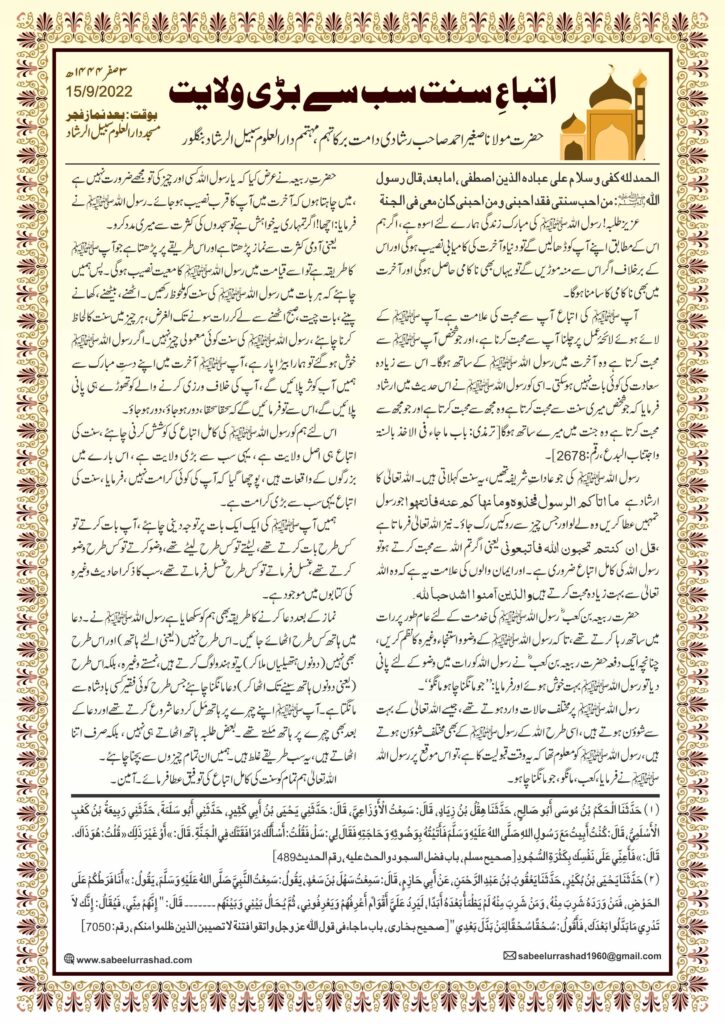 ۳ صفر ۱۴۴۴ھ
15/9/2022
بوقت : بعد نماز فجر
مسجد دار العلوم سبیل الرشاد
اتباعِ سنت سب سے بڑی ولایت
حضرت مولانا صغیر احمد صاحب رشادی دامت برکاتہم، مہتمم دار العلوم سبیل الرشاد بنگلور
الحمد للہ کفی و سلام علی عبادہ الذین اصطفی ،اما بعد،قال رسول
اللہ ﷺ: من احب سنتی فقد احبنی ومن احبنی کان معی فی الجنة
عزیز طلبہ! رسول اللہ ﷺ کی مبارک زندگی ہمارے لئے اسوہ ہے، اگر ہم
اس کے مطابق اپنے آپ کو ڈھالیں گے تو دنیا و آخرت کی کامیابی نصیب ہوگی اور اس
کے برخلاف اگر اس سے منہ موڑیں گے تو یہاں بھی ناکامی حاصل ہوگی اور آخرت
میں بھی ناکامی کا سامنا ہوگا۔
آپ ﷺ کی اتباع آپ سے محبت کی علامت ہے۔ آپ ﷺ کے
لائے ہوئے لائحۂ عمل پر چلنا آپ سے محبت کرنا ہے، اور جو شخص آپ سے
محبت کرتا ہے وہ آخرت میں رسول اللہ ﷺ کے ساتھ ہوگا۔ اس سے زیادہ
سعادت کی کوئی بات نہیں ہوسکتی۔ اسی کو رسول اللہ ﷺ نے اس حدیث میں ارشاد
فرمایا کہ جو شخص میری سنت سے محبت کرتا ہے وہ مجھ سے محبت کرتا ہے اور جو مجھ سے
محبت کرتا ہے وہ جنت میں میرے ساتھ ہوگا[ ترمذی: باب ما جاء فی الاخذ بالسنۃ
واجتناب البدع، رقم: 2678]۔
رسول اللہ ﷺ کی جو عاداتِ شریفہ تھیں، یہ سنت کہلاتی ہیں۔ اللہ تعالی کا
ارشاد ہے ما آتاکم الرسول فخذوہ وما نہاکم عنہ فانتہوا جو رسول
تمہیں عطا کریں وہ لے لو اور جس چیز سے روکیں رک جاؤ۔ نیز اللہ تعالی فرماتا ہے
،قل ان کنتم تحبون اللہ فاتبعونی یعنی اگر تم اللہ سے محبت کرتے ہو تو،
رسول اللہ کی کامل اتباع ضروری ہے۔ اور ایمان والوں کی علامت یہ ہے کہ وہ اللہ
تعالی سے بہت زیادہ محبت کرتے ہیں والذین آمنوا اشد حبا للہ
حضرت ربیعہ بن کعبؓ رسول اللہ ﷺ کی خدمت کے لئے عام طور پر رات
میں ساتھ رہا کرتے تھے، تاکہ رسول اللہ ﷺ کے وضو و استنجاء وغیرہ کا نظم کریں،
چنانچہ ایک دفعہ حضرت ربیعہ بن کعبؓ نے رسول اللہ کو رات میں وضو کے لئے پانی
دیا تو رسول اللہ ﷺ بہت خوش ہوئے اور فرمایا: "جو مانگنا چاہو مانگو"۔
رسول اللہ ﷺ پر مختلف حالات وارد ہوتے تھے، جیسے اللہ تعالی کے بہت
سے شوؤن ہوتے ہیں، اسی طرح اللہ کے رسول ﷺ کے بھی مختلف شوؤن ہوتے
ہیں، رسول اللہ ﷺ کو معلوم تھا کہ یہ وقت قبولیت کا ہے، تو اس موقع پر رسول اللہ
ﷺ نے فرمایا، کعب، مانگو، جو مانگنا چاہو۔
حضرت ربیعہ نے عرض کیا کہ یا رسول اللہ کسی اور چیز کی تو مجھے ضرورت نہیں ہے
، میں چاہتا ہوں کہ آخرت میں آپ کا قرب نصیب ہو جائے۔ رسول اللہ ﷺ نے
فرمایا: اچھا! اگر تمہاری یہ خواہش ہے تو سجدوں کی کثرت سے میری مدد کرو۔
یعنی آدمی کثرت سے نماز پڑھتا ہے اور اس طریقے پر پڑھتا ہے جو آپ ﷺ
کا طریقہ ہے تو اسے قیامت میں رسول اللہ ﷺ کا معیت نصیب ہوگی۔ پس ہمیں
چاہئے کہ ہر بات میں رسول اللہ ﷺ کی سنت کو ملحوظ رکھیں۔ اٹھنے، بیٹھنے، کھانے
پینے، بات چیت، صبح اٹھنے سے لے کر رات سونے تک الغرض، ہر چیز میں سنت کا لحاظ
کرنا چاہئے، رسول اللہ ﷺ کی سنت کوئی معمولی چیز نہیں۔ اگر رسول اللہ ﷺ
خوش ہو گئے تو ہمارا بیڑا پار ہے، آپ ﷺ آخرت میں اپنے دستِ مبارک سے
ہمیں آپ کوثر پلائیں گے، آپ کی خلاف ورزی کرنے والے کو تھوڑے ہی پانی
پلائیں گے، اس سے تو فرمائیں گے کہ سحقا سحقا، دور ہو جاؤ، دور ہو جاؤ۔
اس لئے ہم کو رسول اللہ ﷺ کی کامل اتباع کی کوشش کرنی چاہئے، سنت کی
اتباع ہی اصل ولایت ہے، یہی سب سے بڑی ولایت ہے، اس بارے میں
بزرگوں کے واقعات ہیں، پوچھا گیا کہ آپ کی کوئی کرامت نہیں، فرمایا، سنت کی
اتباع یہی سب سے بڑی کرامت ہے۔
ہمیں آپ ﷺ کی ایک ایک بات پر توجہ دینی چاہئے، آپ بات کرتے تو
کس طرح بات کرتے تھے، لیٹتے تو کس طرح لیٹتے تھے، وضو کرتے تو کس طرح وضو
کرتے تھے، غسل فرماتے تو کس طرح غسل فرماتے تھے، سب کا ذکر احادیث وغیرہ
کی کتابوں میں موجود ہے۔
نماز کے بعد دعا کرنے کا طریقہ بھی ہم کو سکھایا ہے رسول اللہ ﷺ نے۔ دعا
میں ہاتھ کس طرح اٹھائے جائیں۔ اس طرح نہیں (یعنی الٹے ہاتھ) اور اس طرح
بھی نہیں (دونوں ہتھیلیاں ملا کر) یہ تو ہندو لوگ کرتے ہیں، نمستے وغیرہ، بلکہ اس طرح
(یعنی دونوں ہاتھ سینے تک اٹھا کر) دعا مانگنا چاہئے جس طرح کوئی فقیر کسی بادشاہ سے
مانگتا ہے۔ آپ ﷺ اپنے چہرے پر ہاتھ مَل کر دعا شروع کرتے تھے اور دعا کے
بعد بھی چہرے پر ہاتھ ملتے تھے۔ بعض طلبہ ہاتھ اٹھاتے ہی نہیں، بلکہ صرف اتنا
اٹھاتے ہیں، یہ سب طریقے غلط ہیں۔ ہمیں ان تمام چیزوں سے بچنا چاہئے۔
اللہ تعالی ہم تمام کو سنت کی کامل اتباع کی توفیق عطا فرمائے۔ آمین۔
(۱) حَدَّثَنَا الْحَكَمُ بْنُ مُوسَى أَبُو صَالِحٍ، حَدَّثَنَا هِقْلُ بْنُ زِيَادٍ، قَالَ: سَمِعْتُ الْأَوْزَاعِيَّ، قَالَ: حَدَّثَنِي يَحْيَى بْنُ أَبِي كَثِيرٍ، حَدَّثَنِي أَبُو سَلَمَةَ، حَدَّثَنِي رَبِيعَةُ بْنُ كَعْبٍ
الْأَسْلَمِيُّ، قَالَ: كُنْتُ أَبِيتُ مَعَ رَسُولِ اللهِ صَلَّى اللهُ عَلَيْهِ وَسَلَّمَ فَأَتَيْتُهُ بِوَضُوئِهِ وَحَاجَتِهِ فَقَالَ لِي: سَلْ فَقُلْتُ: أَسْأَلُكَ مُرَافَقَتَكَ فِي الْجَنَّةِ. قَالَ: »أَوْ غَيْرَ ذَلِكَ« قُلْتُ: هُوَ ذَاكَ.
قَالَ: »فَأَعِنِّي عَلَى نَفْسِكَ بِكَثْرَةِ السُّجُودِ [صحیح مسلم ، باب فضل السجود والحث علیہ ، رقم الحدیث 489]
(۲) حَدَّثَنَا يَحْيَى بْنُ بُكَيْرٍ، حَدَّثَنَا يَعْقُوبُ بْنُ عَبْدِ الرَّحْمَنِ، عَنْ أَبِي حَازِمٍ، قَالَ: سَمِعْتُ سَهْلَ بْنَ سَعْدٍ، يَقُولُ: سَمِعْتُ النَّبِيَّ صَلَّى اللهُ عَلَيْهِ وَسَلَّمَ، يَقُولُ: »أَنَا فَرَطُكُمْ عَلَى
الحَوْضِ، فَمَنْ وَرَدَهُ شَرِبَ مِنْهُ، وَمَنْ شَرِبَ مِنْهُ لَمْ يَظْمَأْ بَعْدَهُ أَبَدًا، لَيَرِدُ عَلَيَّ أَقْوَامٌ أَعْرِفُهُمْ وَيَعْرِفُونِي، ثُمَّ يُحَالُ بَيْنِي وَبَيْنَهُمْ ------- قَالَ: " إِنَّهُمْ مِنِّي، فَيُقَالُ: إِنَّكَ لاَ
تَدْرِي مَا بَدَّلُوا بَعْدَكَ، فَأَقُولُ: سُحْقًا سُحْقًا لِمَنْ بَدَّلَ بَعْدِي "[صحیح بخاری ، باب ماجاء فی قول اللہ عز وجل واتقوا فتنۃ لا تصیبن الذین ظلموا منکم ، رقم: 7050]
www.sabeelurrashad.com
sabeelurrashad1960@gmail.com